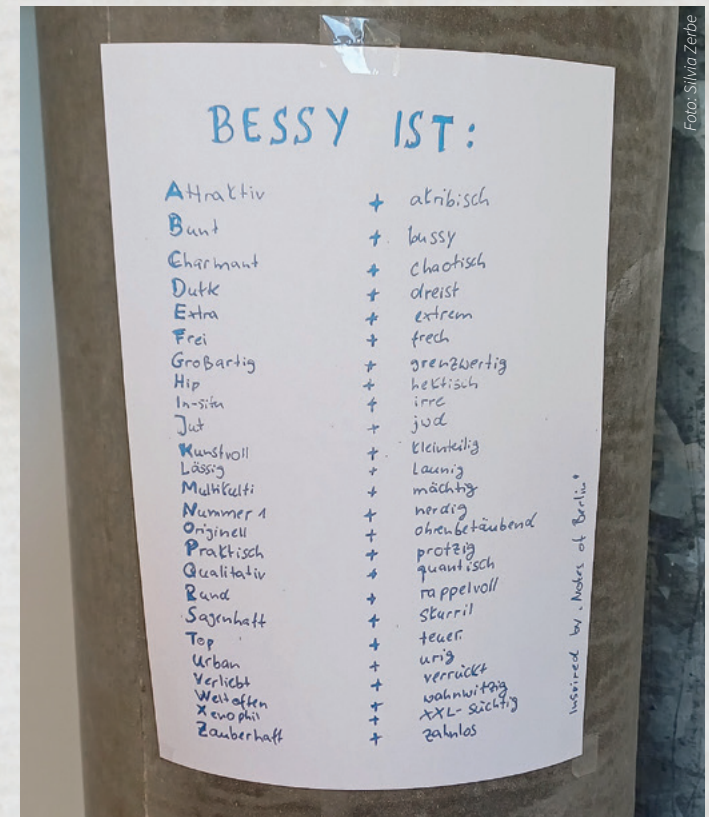 Foto: Silvia Zerbe
BESSY IST:
Attraktiv + akribisch
Bunt + bussy
Charmant + chaotisch
Dufte + dreist
Extra + extrem
Frei + frech
Großartig + grenzwertig
Hip + hektisch
In-situ + irre
Jut + jwd
Kunstvoll + kleinteilig
Lässig + launig
Multikulti + mächtig
Nummer 1 + nerdig
Originell + ohrenbetäubend
Praktisch + protzig
Qualitativ + quantisch
Rund + rappelvoll
Sagenhaft + skurril
Top + teuer
Urban + urig
Verliebt + verrückt
Weltoffen + wahnwitzig
Xenophil + XXL-süchtig
Zauberhaft + zahnlos
Inspired by "Notes of Berlin"